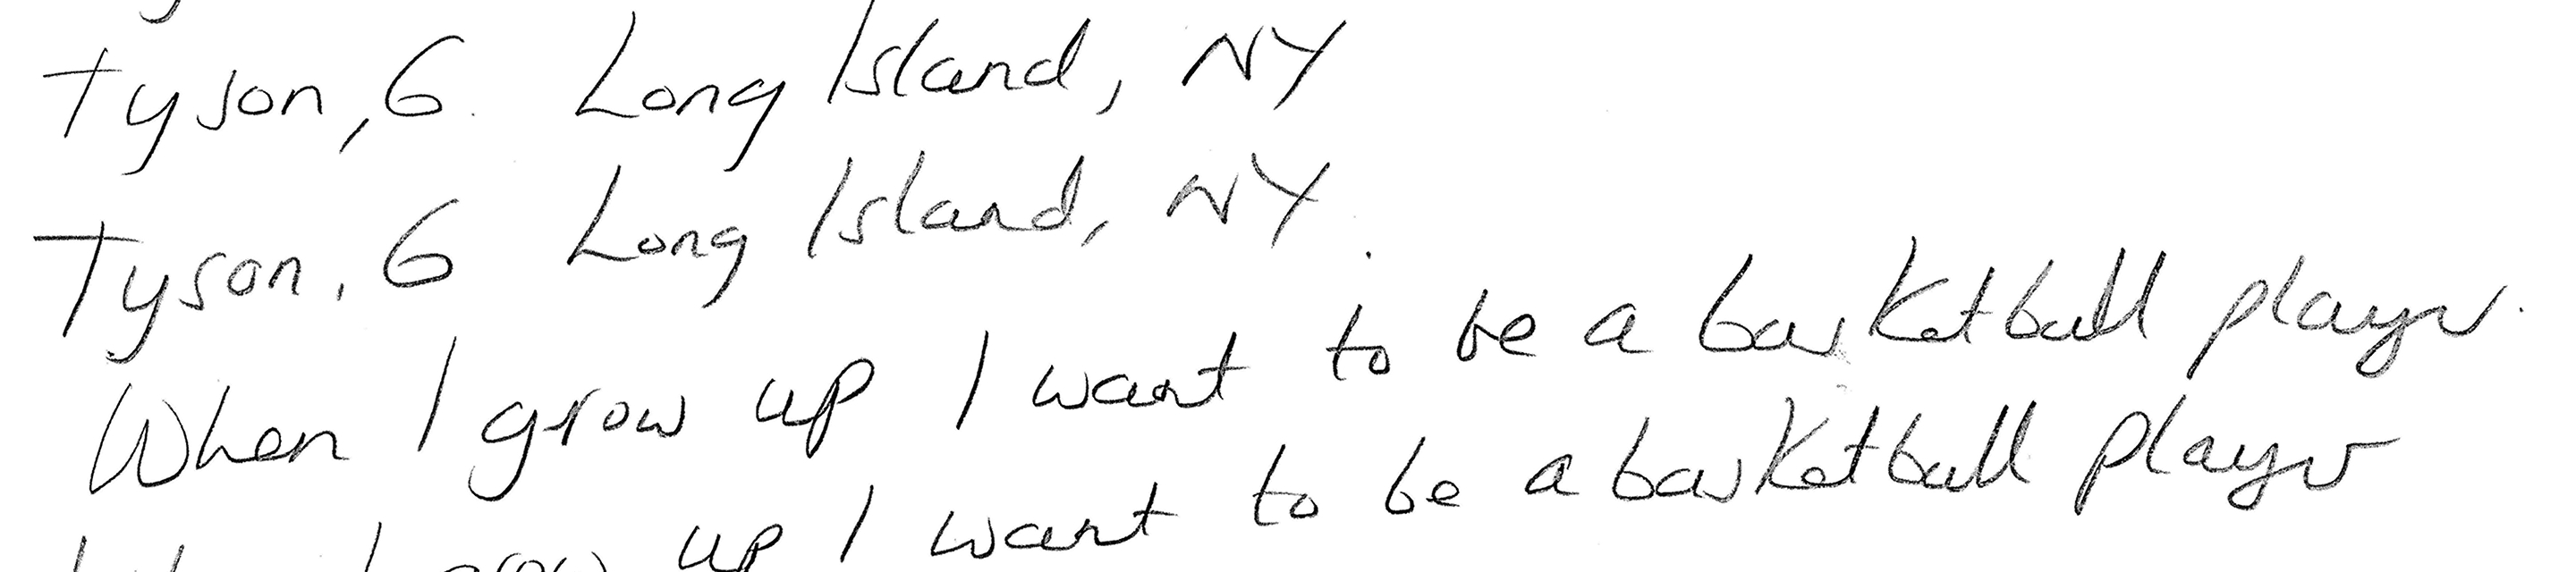 Tyson, 6. Long Island, NY
Tyson, 6 Long Island, NY.
When I grow up I want to be a basketball player.
When I grow up I want to be a basketball player